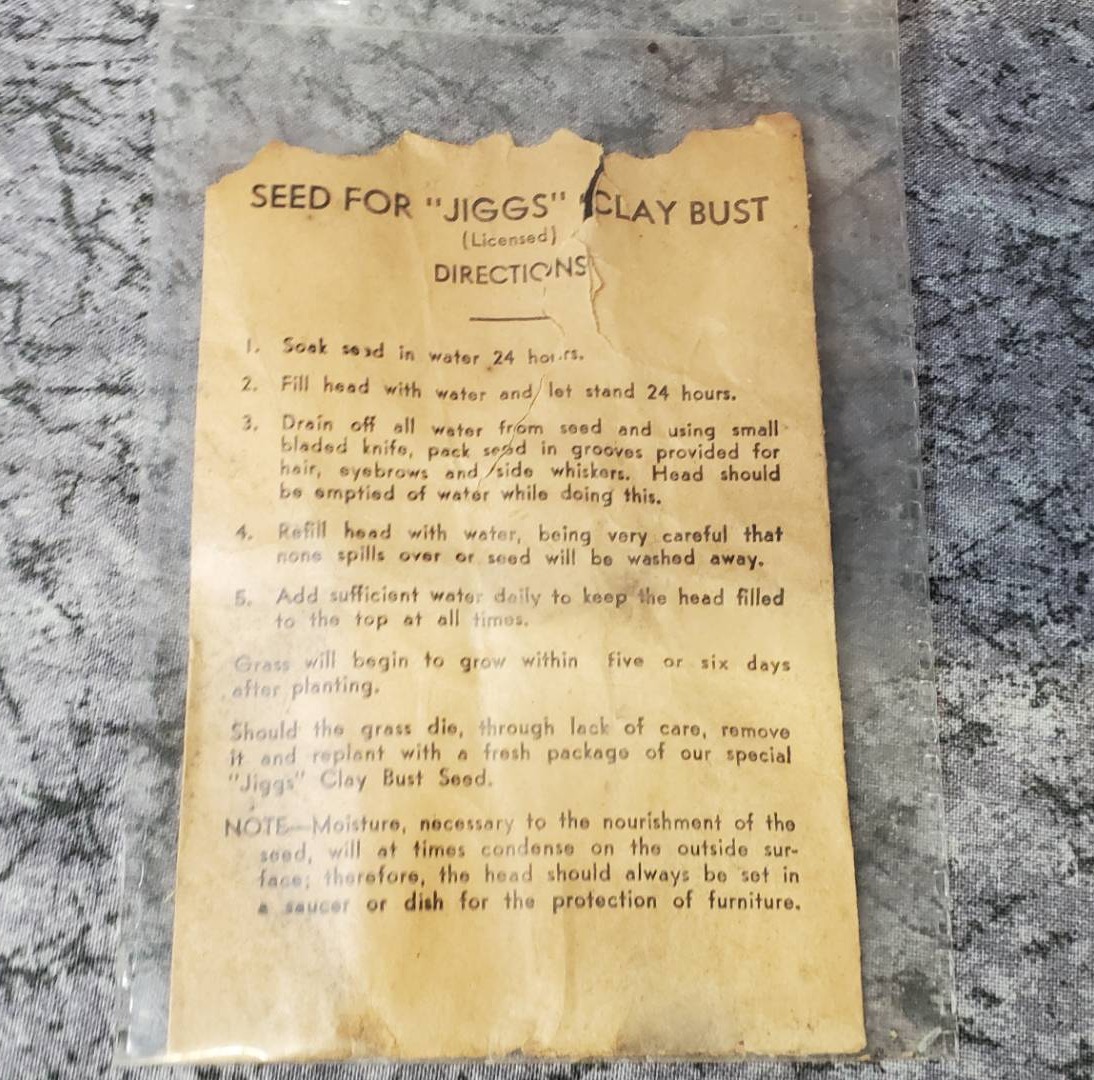 SEED FOR "JIGGS" CLAY BUST
(Licensed)
DIRECTIONS
1. Soak seed in water 24 hours.
2. Fill head with water and let stand 24 hours.
3. Drain off all water from seed and using small
bladed knife, pack seed in grooves provided for
hair, eyebrows and side whiskers. Head should
be emptied of water while doing this.
4. Refill head with water, being very careful that
none spills over or seed will be washed away.
5. Add sufficient water daily to keep the head filled
to the top at all times.
Grass will begin to grow within five or six days
after planting.
Should the grass die, through lack of care, remove
it and replant with a fresh package of our special
"Jiggs" Clay Bust Seed.
NOTE—Moisture, necessary to the nourishment of the
seed, will at times condense on the outside sur-
face; therefore, the head should always be set in
a saucer or dish for the protection of furniture.